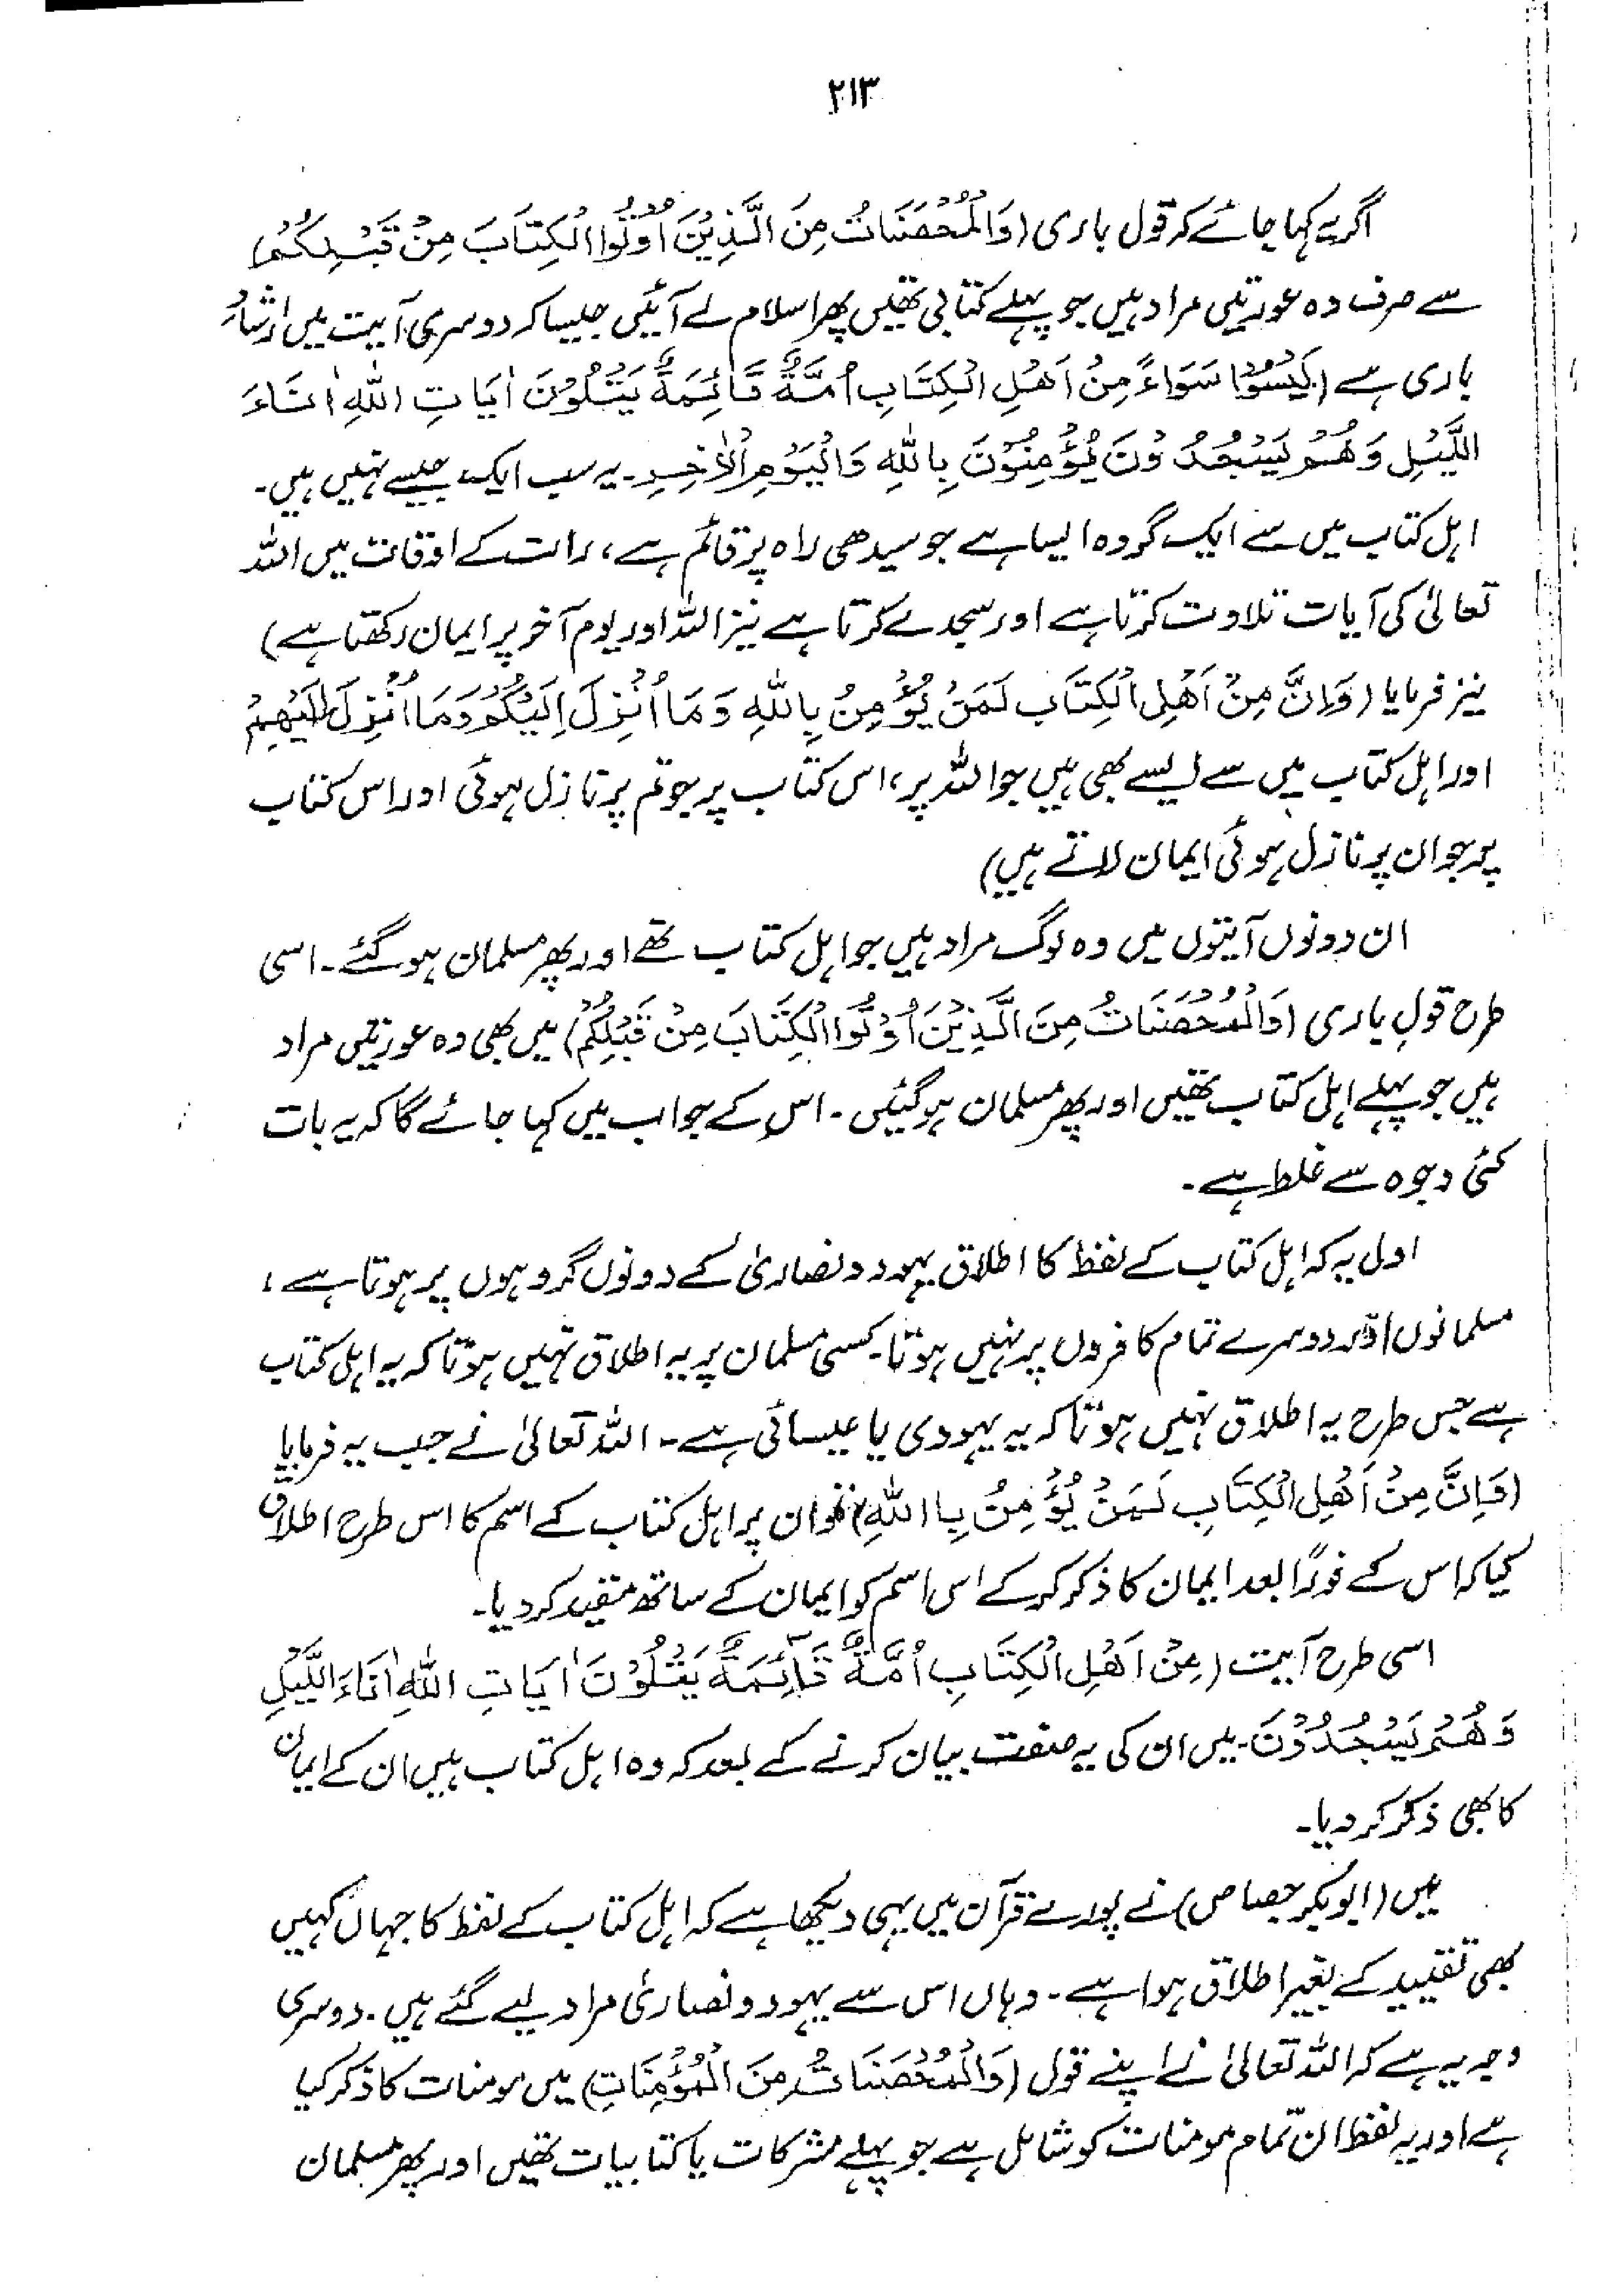 ۲۱۳
اگر یہ کہا جائے کہ قول باری (وَالْمُحْصَنَاتُ مِنَ الَّذِيْنَ اُوْتُوا الْكِتَابَ مِنْ قَبْلِكُمْ)
سے صرف وہ عورتیں مراد ہیں جو پہلے کتابی تھیں پھر اسلام لے آئیں جیسا کہ دوسری آیت میں ارشاد
باری ہے (لَيْسُوْا سَوَاءً مِنْ اَهْلِ الْكِتَابِ اُمَّةٌ قَائِمَةٌ يَتْلُوْنَ اٰيَاتِ اللّٰهِ اٰنَاءَ
اللَّيْلِ وَهُمْ يَسْجُدُوْنَ يُؤْمِنُوْنَ بِاللّٰهِ وَالْيَوْمِ الْاٰخِرِ۔ یہ سب ایک جیسے نہیں ہیں۔
اہل کتاب میں سے ایک گروہ ایسا ہے جو سیدھی راہ پر قائم ہے، رات کے اوقات میں اللہ
تعالیٰ کی آیات تلاوت کرتا ہے اور سجدے کرتا ہے نیز اللہ اور یوم آخر پر ایمان رکھتا ہے)
نیز فرمایا (وَاِنَّ مِنْ اَهْلِ الْكِتَابِ لَمَنْ يُؤْمِنُ بِاللّٰهِ وَمَا اُنْزِلَ اِلَيْكُمْ وَمَا اُنْزِلَ اِلَيْهِمْ
اور اہل کتاب میں سے ایسے بھی ہیں جو اللہ پر، اس کتاب پر جو تم پر نازل ہوئی اور اس کتاب
پر جو ان پر نازل ہوئی ایمان لاتے ہیں)
ان دونوں آیتوں میں وہ لوگ مراد ہیں جو اہل کتاب تھے اور پھر مسلمان ہو گئے۔ اسی
طرح قولِ باری (وَالْمُحْصَنَاتُ مِنَ الَّذِيْنَ اُوْتُوا الْكِتَابَ مِنْ قَبْلِكُمْ) میں بھی وہ عورتیں مراد
ہیں جو پہلے اہل کتاب تھیں اور پھر مسلمان ہو گئیں۔ اس کے جواب میں کہا جائے گا کہ یہ بات
کئی وجوہ سے غلط ہے۔
اول یہ کہ اہل کتاب کے لفظ کا اطلاق یہود و نصاریٰ کے دونوں گروہوں پر ہوتا ہے،
مسلمانوں اور دوسرے تمام کافروں پر نہیں ہوتا۔ کسی مسلمان پر یہ اطلاق نہیں ہوتا کہ یہ اہل کتاب
ہے جس طرح یہ اطلاق نہیں ہوتا کہ یہ یہودی یا عیسائی ہے۔ اللہ تعالیٰ نے جب یہ فرمایا
(وَاِنَّ مِنْ اَهْلِ الْكِتَابِ لَمَنْ يُؤْمِنُ بِااللّٰهِ) تو ان پر اہل کتاب کے اسم کا اس طرح اطلاق
کیا کہ اس کے فوراً بعد ایمان کا ذکر کر کے اس اسم کو ایمان کے ساتھ مقید کر دیا۔
اسی طرح آیت (مِنْ اَهْلِ الْكِتَابِ اُمَّةٌ قَآئِمَةٌ يَتْلُوْنَ اٰيَاتِ اللّٰهِ اٰنَاءَ اللَّيْلِ
وَهُمْ يَسْجُدُوْنَ۔ میں ان کی یہ صفت بیان کرنے کے بعد کہ وہ اہل کتاب ہیں ان کے ایمان
کا بھی ذکر کر دیا۔
میں (ابوبکر جصاص) نے پورے قرآن میں یہی دیکھا ہے کہ اہل کتاب کے لفظ کا جہاں کہیں
بھی تقیید کے بغیر اطلاق ہوا ہے۔ وہاں اس سے یہود و نصاریٰ مراد لیے گئے ہیں۔ دوسری
وجہ یہ ہے کہ اللہ تعالیٰ نے اپنے قول (وَالْمُحْصَنَاتُ مِنَ الْمُؤْمِنَاتِ) میں مومنات کا ذکر کیا
ہے اور یہ لفظ ان تمام مومنات کو شامل ہے جو پہلے مشرکات یا کتابیات تھیں اور پھر مسلمان